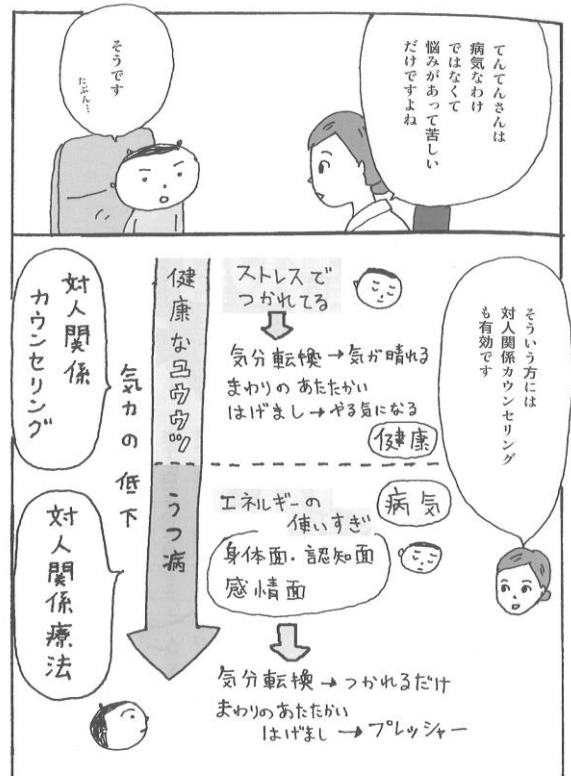 てんてんさんは
病気なわけ
ではなくて
悩みがあって苦しい
だけですよね
そうです
たぶん…
そういう方には
対人関係カウンセリング
も有効です
ストレスで
つかれてる
気分転換→気が晴れる
まわりのあたたかい
はげまし→やる気になる
健康
健康なユウウツ
気力の低下
対人関係
カウンセリング
病気
エネルギーの
使いすぎ
身体面・認知面
感情面
うつ病
対人関係療法
気分転換→つかれるだけ
まわりのあたたかい
はげまし→プレッシャー